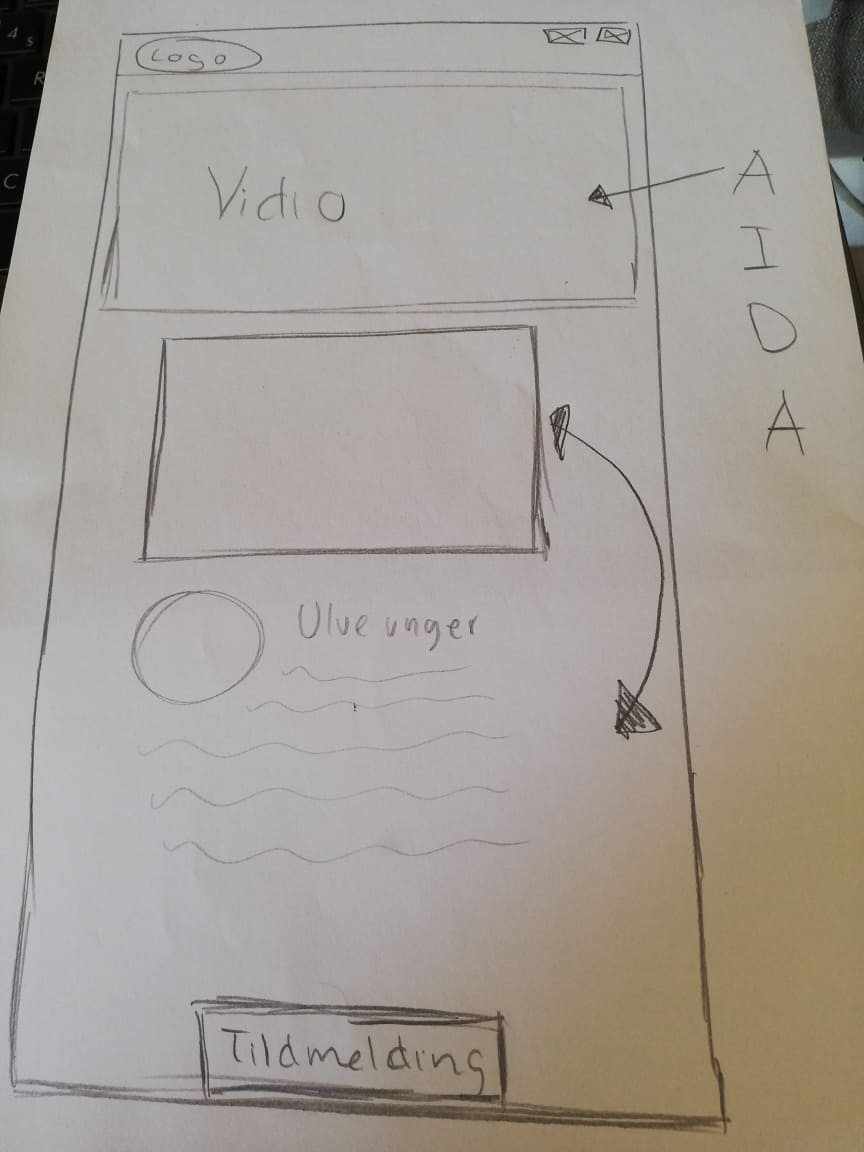 Logo
Vidio
A
I
D
A
Ulve unger
Tildmelding